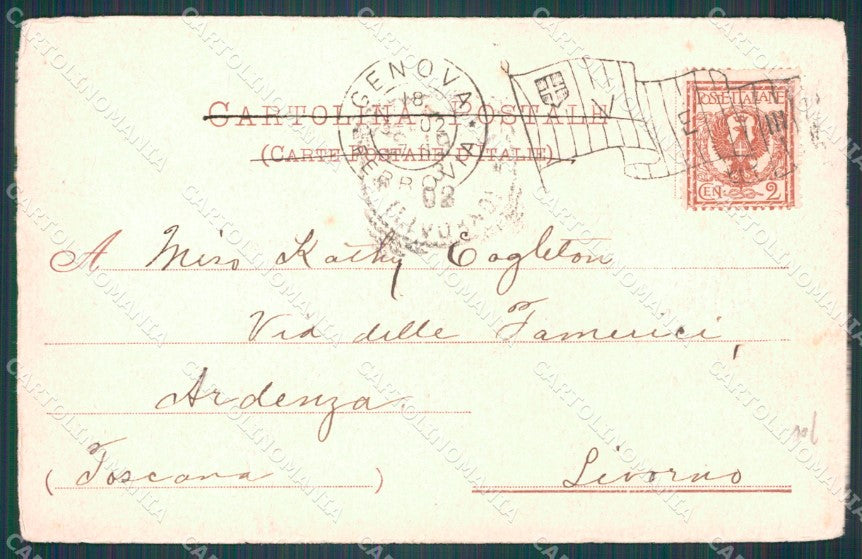 CARTOLINA POSTALE
(CARTE POSTALE D'ITALIE)
GENOVA
FERROVIA
18
02
(LIVORNO)
POSTE ITALIANE
CEN 2
VERI
A Miss Kathy Eagleton
Via delle Tamerici,
Ardenza
(Toscana)
Livorno
106
CARTOLINOMANIA